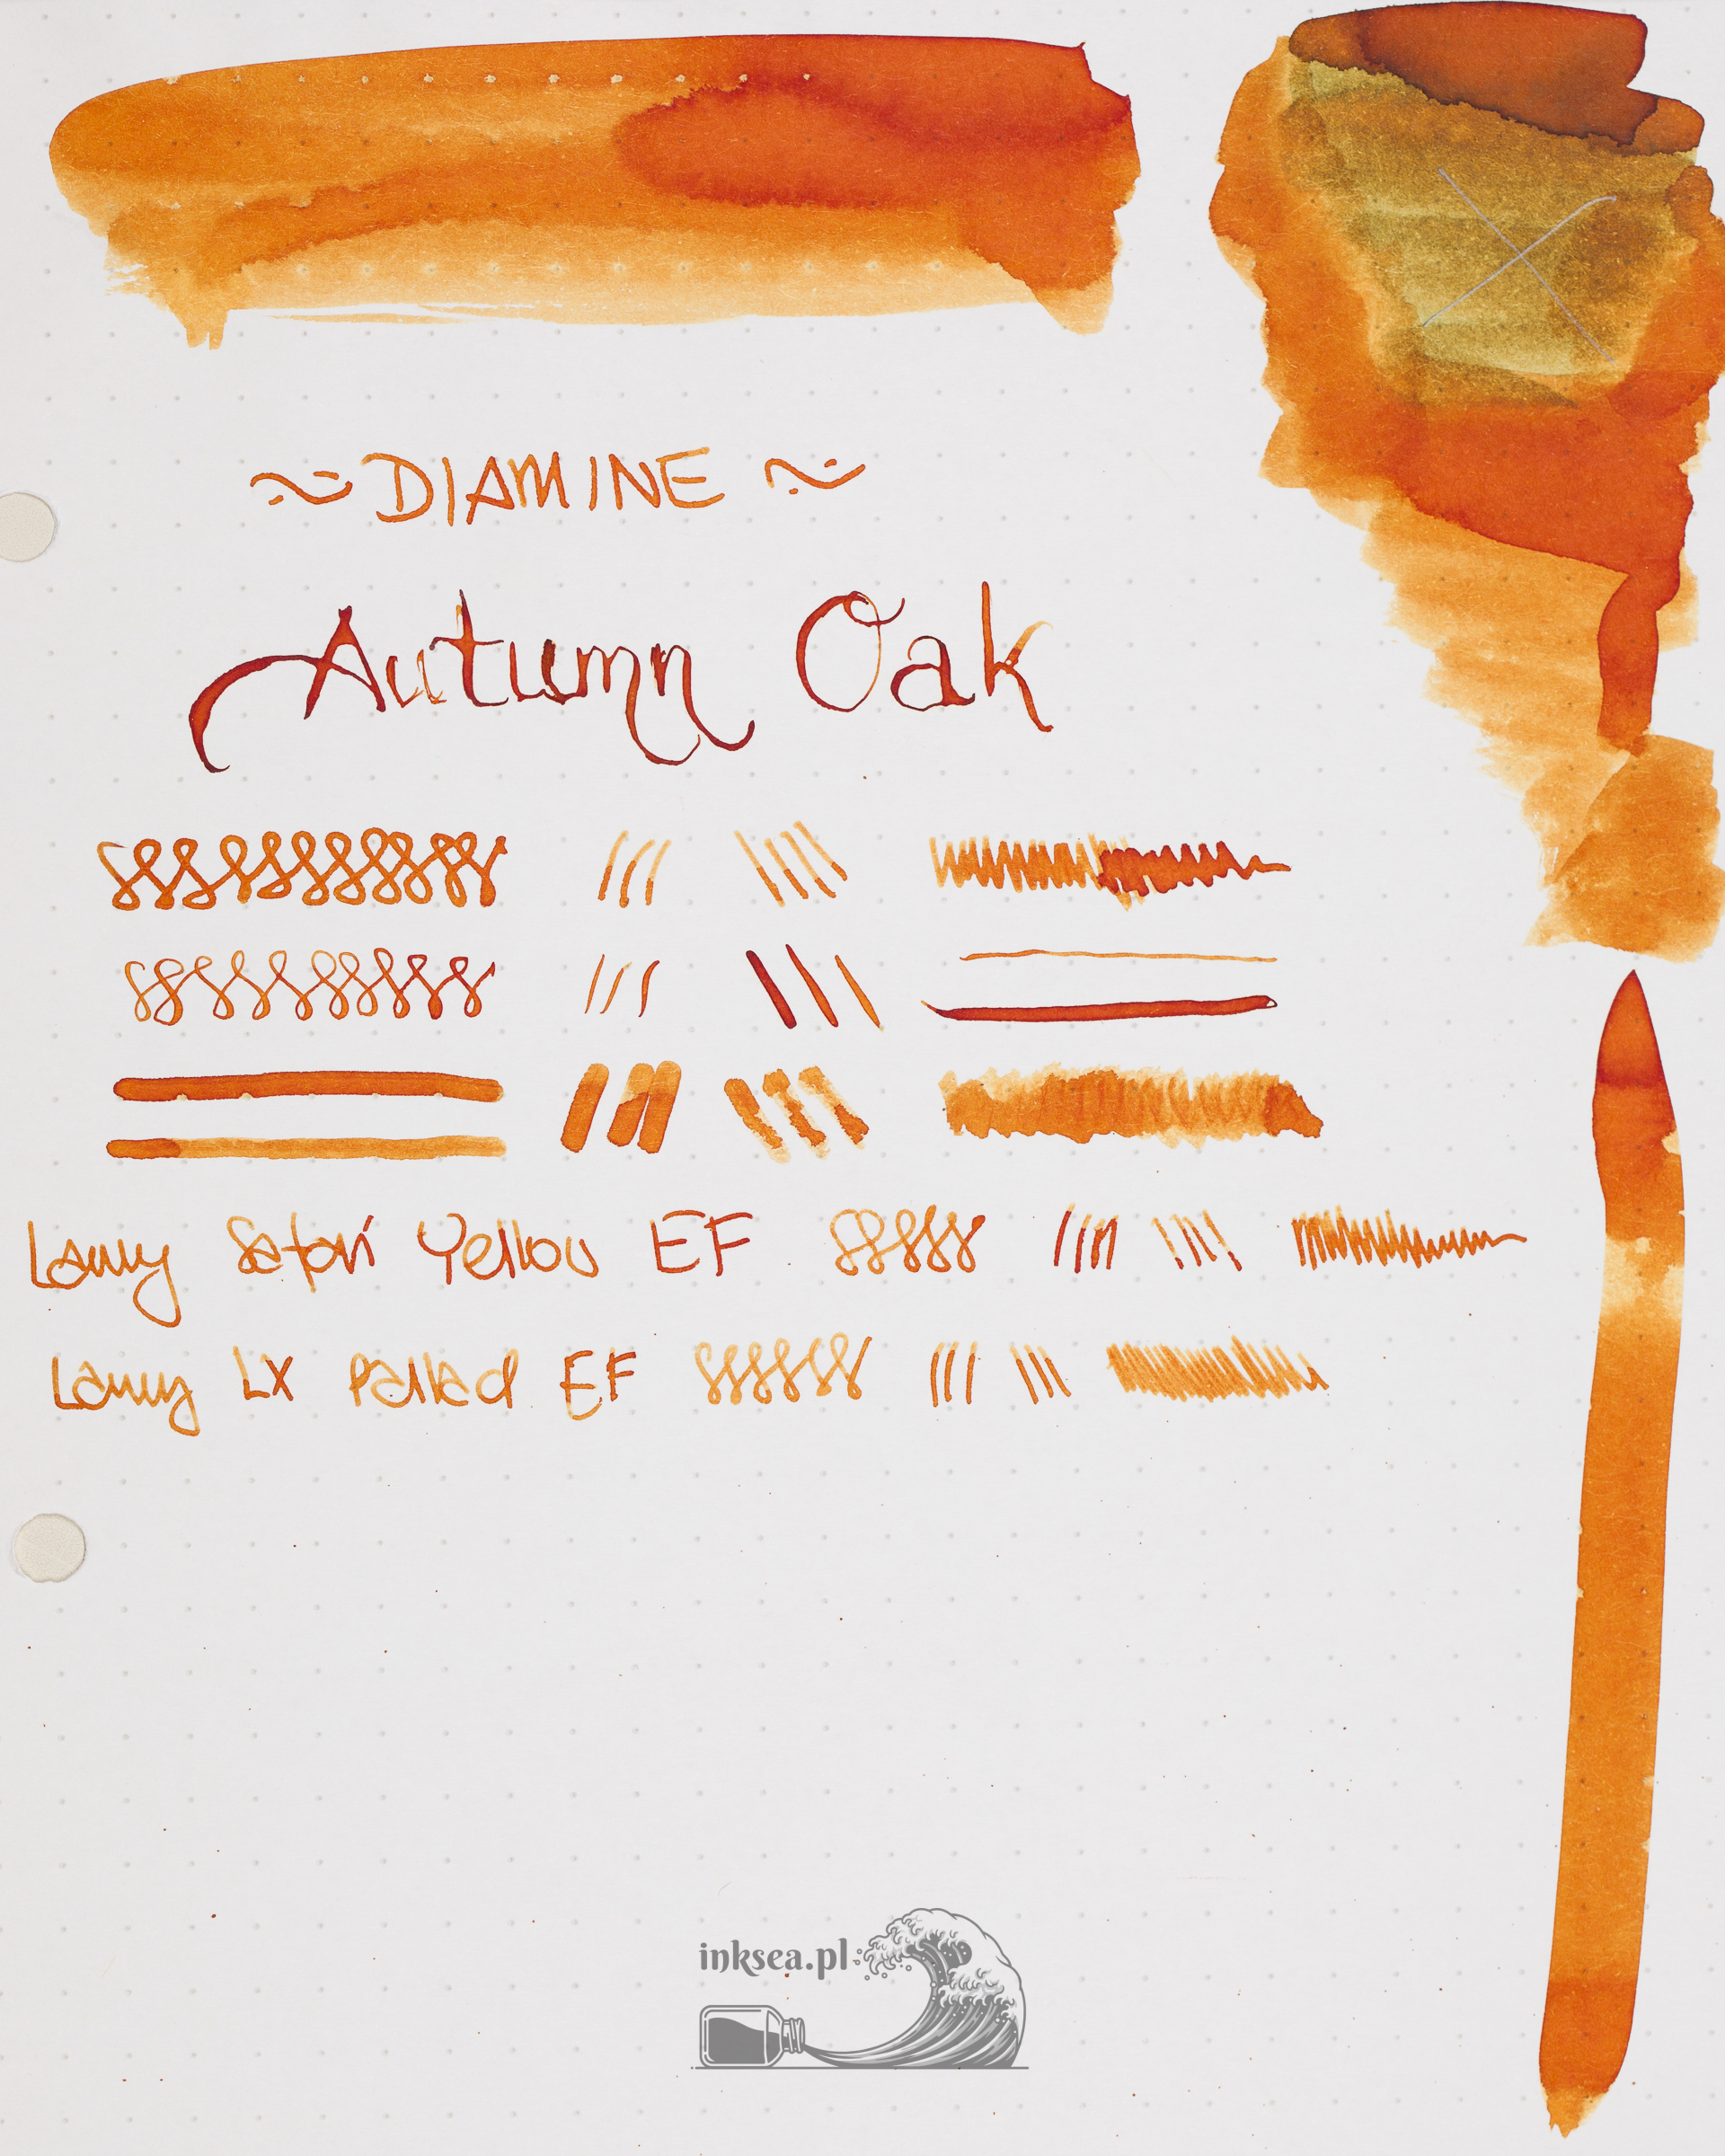 ~ DIAMINE ~
Autumn Oak
Lamy Safari Yellow EF
Lamy LX Pallad EF
inksea.pl